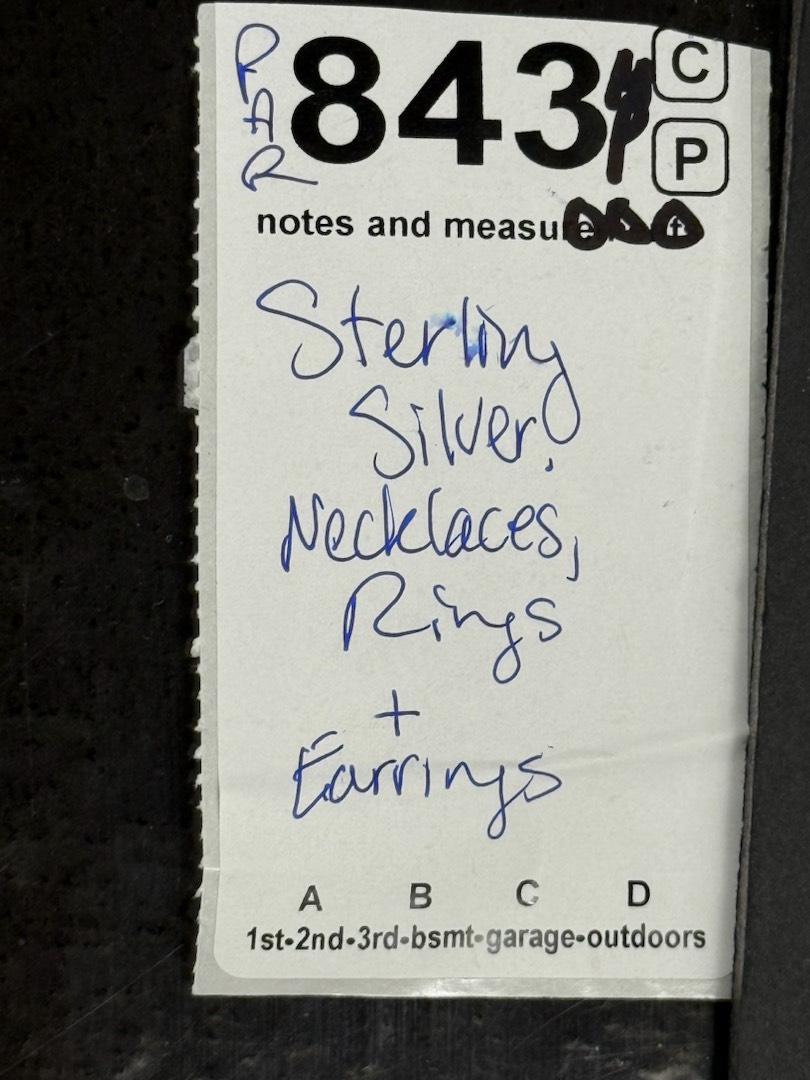 PAR
843
C
P
notes and measure
Sterling
Silver,
Necklaces,
Rings
+
Earrings
A B C D
1st-2nd-3rd-bsmt-garage-outdoors